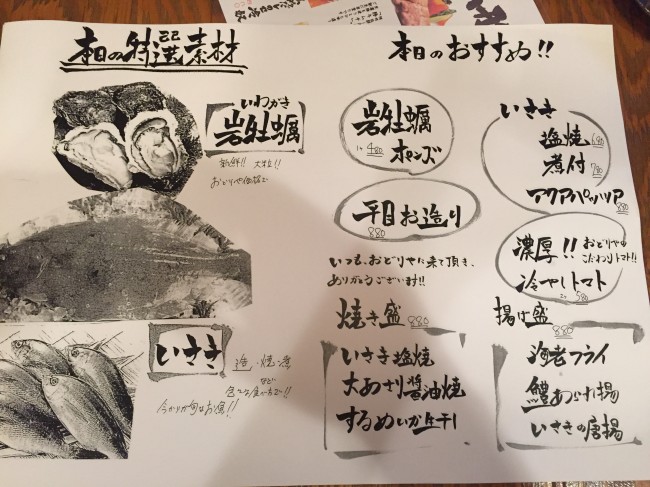 本日の特選素材
いわがき
岩牡蠣
新鮮!! 大粒!!
おどりや価格で
いさき
造り・焼・煮
など
色々な食べ方で!!
今からが旬なお魚!!
本日のおすすめ!!
岩牡蠣
ポンズ
480
平目お造り
880
いつも、おどりやに来て頂き、
ありがとうございます!!
焼き盛 880
いさき塩焼
大あさり醤油焼
するめいか生干
いさき
塩焼 680
煮付 780
アクアパッツァ
880
濃厚!! おどりやの
こだわりトマト!!
冷やしトマト
580
揚げ盛
880
海老フライ
鱧あられ揚
いさきの唐揚